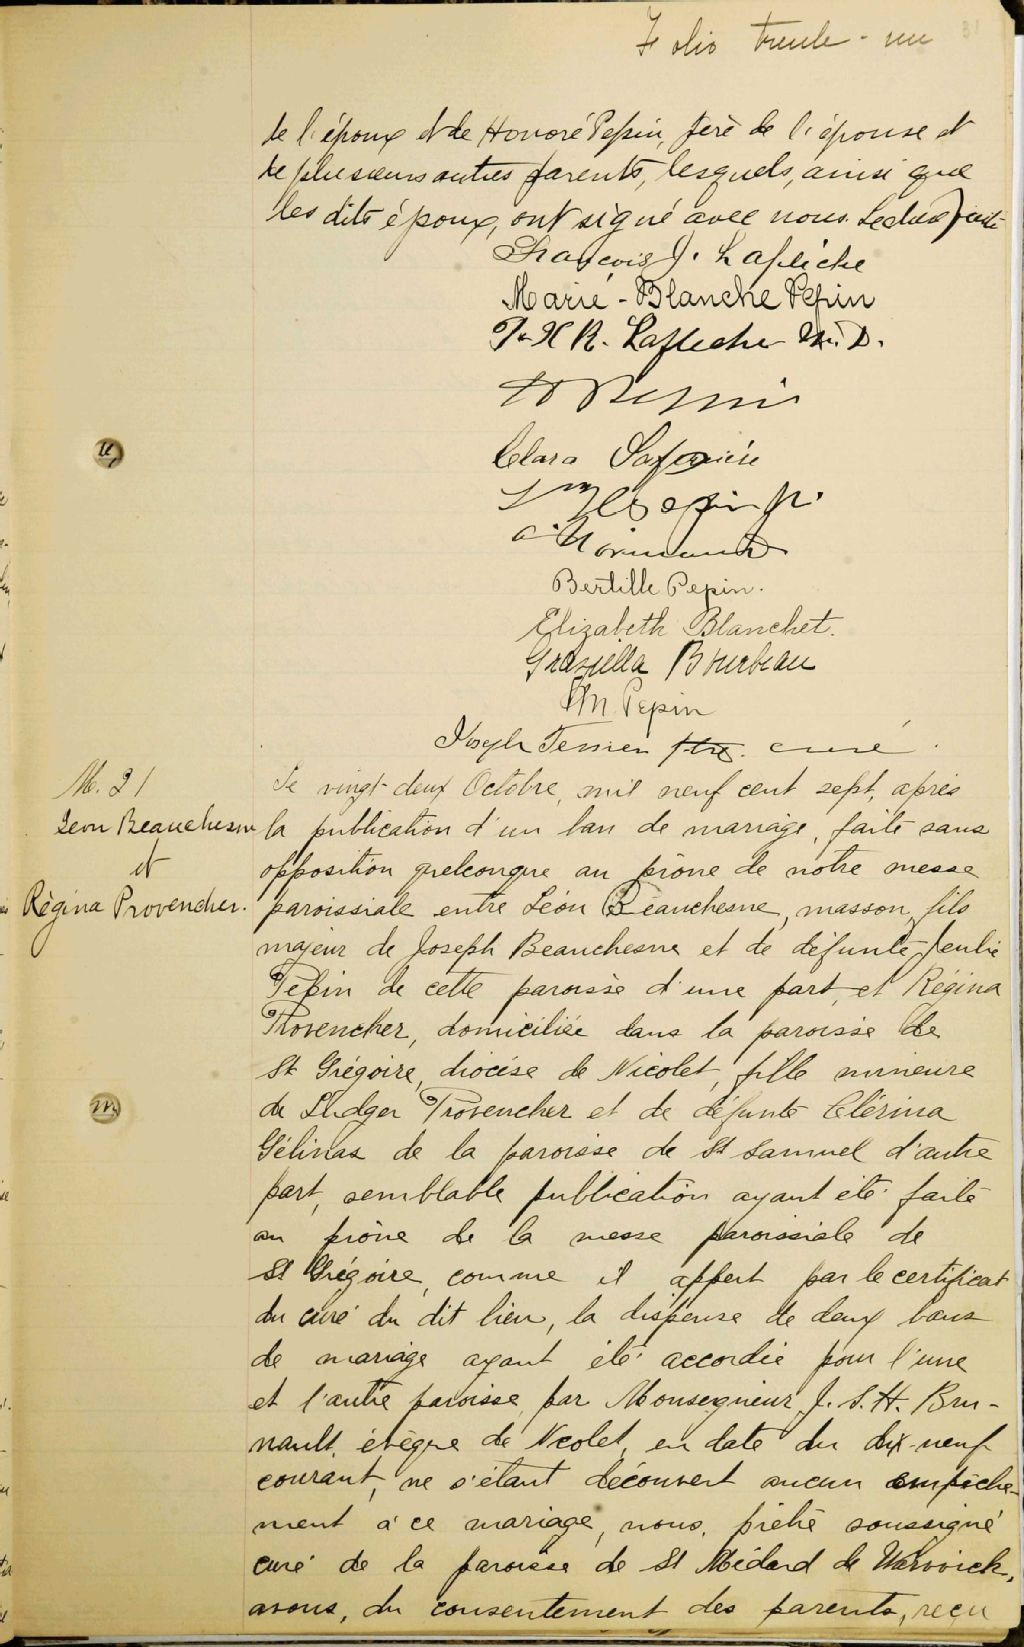 Folio trente-un
31
de l'époux et de Honoré Pepin, père de l'épouse et
de plusieurs autres parents, lesquels, ainsi que
les dits époux, ont signé avec nous. Lecture faite
François J. Laflèche
Marie-Blanche Pepin
R. Laflèche M.D.
H Pepin
Clara
Pepin Jr.
a. Normand
Bertille Pepin.
Elizabeth Blanchet.
Graziella Bourbeau
Pepin
Joseph Tessier ptre. curé.
M. 21
Léon Beauchesne
et
Régina Provencher.
Le vingt-deux Octobre, mil neuf cent sept, après
la publication d'un ban de mariage, faite sans
opposition quelconque au prône de notre messe
paroissiale entre Léon Beauchesne, masson, fils
majeur de Joseph Beauchesne et de défunte
Pépin de cette paroisse d'une part, et Régina
Provencher, domiciliée dans la paroisse de
St Grégoire, diocèse de Nicolet, fille mineure
de Ludger Provencher et de défunte Clérina
Gélinas de la paroisse de St Samuel d'autre
part, semblable publication ayant été faite
au prône de la messe paroissiale de
St Grégoire, comme il appert par le certificat
du curé du dit lieu, la dispense de deux bans
de mariage ayant été accordée pour l'une
et l'autre paroisse par Monseigneur J. S. H. Bru-
nault, évêque de Nicolet, en date du dix-neuf
courant, ne s'étant découvert aucun empêche-
ment à ce mariage, nous, prêtre soussigné
curé de la paroisse de St Médard de Warwick,
avons, du consentement des parents, reçu